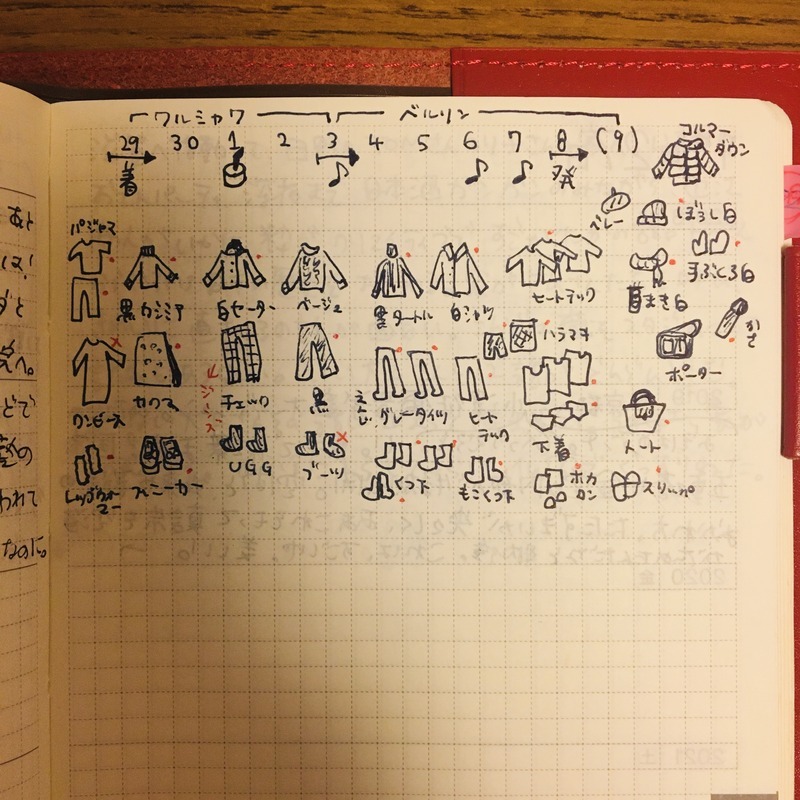 ワルシャワ ベルリン
29 30 1 2 3 4 5 6 7 8 (9)
着 発
コルマー
ダウン
ベレー
ぼうし白
手ぶくろ白
首まき白
かさ
ポーター
トート
スリッパ
パジャマ
黒カシミア
白セーター
ベージュ
黒タートル
白シャツ
ヒートテック
ハラマキ
ワンピース
チェック
黒
グレータイツ
ヒート
テック
下着
ジーンズ
レッグウォー
マー
スニーカー
UGG
ブーツ
くつ下
もこくつ下
ホカ
ロン
あと
は!
だと
えへ。
どで
われて
なのに。
2020
2021 土